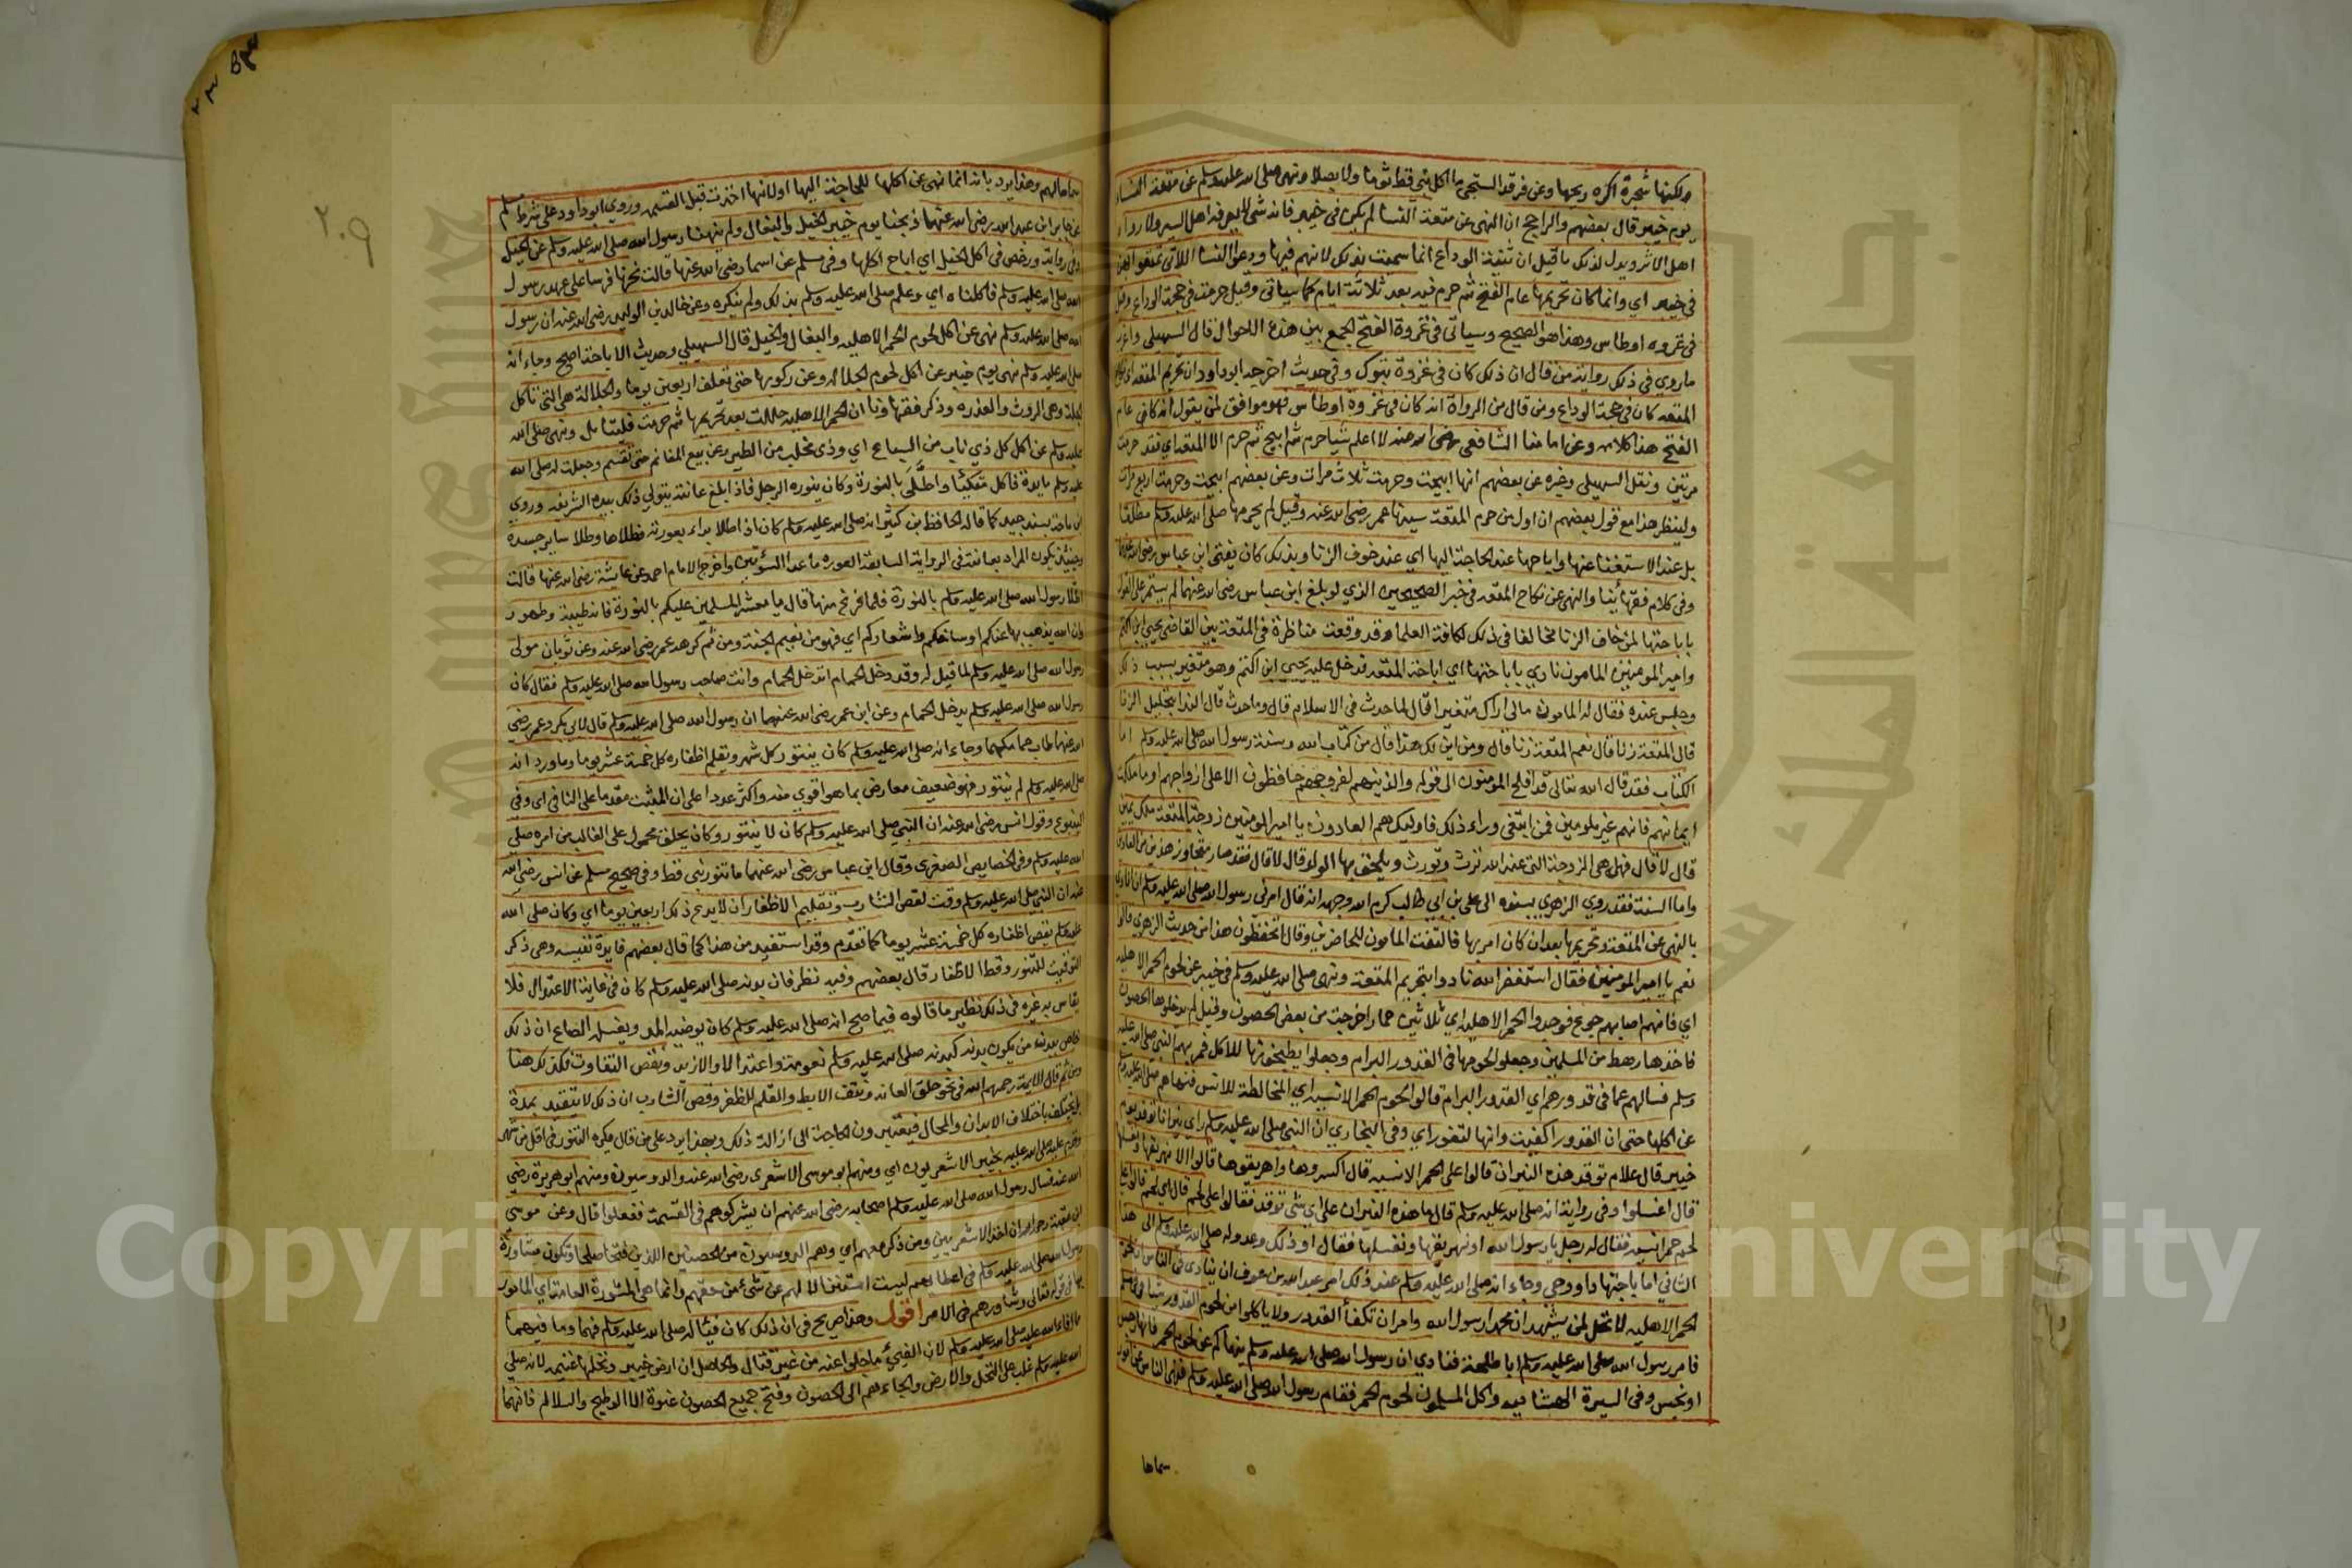 ولكنها شجرة اكره ريحها وعن فرقد السبخي ما اكل نبي قط ثوما ولا بصلا ونهى صلى الله عليه وسلم عن متعة النساء
يوم خيبر قال بعضهم والراجح ان النهى عن متعة النسا لم يكن في خيبر فانه شى لا يعرفه اهل السير ولا رواه
اهل الاثر ويدل لذلك ما قيل ان ثنية الوداع انما سميت بذلك لانهم فيها ودعوا النسا اللاتى تمتعوا بهن
في خيبر اي وانما كان تحريمها عام الفتح ثم حرم فيه بعد ثلاثة ايام كما سياتى وقيل حرمت في حجة الوداع وقيل
في غزوه اوطاس وهذا هو الصحيح وسياتى في غزوة الفتح الجمع بين هذه الاحوال قال السهيلى واغرب
ماروي في ذلك رواية من قال ان ذلك كان في غزوة تبوك وفي حديث اخرجه ابو داود ان تحريم المتعه
المتعه كان في حجة الوداع ومن قال من الرواة انه كان في غزوة اوطاس فهو موافق لمن يقول انه كان عام
الفتح هذا كلامه وعن امامنا الشافعى رضى الله عنه لا اعلم شيا حرم ثم ابيح ثم حرم الا المتعه اي فقد حرمت
مرتين ونقل السهيلى وغيره عن بعضهم انها ابيحت وحرمت ثلاث مرات وعن بعضهم ابيحت وحرمت اربع مرات
ولينظر هذا مع قول بعضهم ان اول من حرم المتعة سيدنا عمر رضى الله عنه وقيل لم يحرمها صلى الله عليه وسلم مطلقا
بل عند الاستغنا عنها واباحها عند الحاجة اليها اي عند خوف الزنا وبذلك كان يفتى ابن عباس رضى الله عنهما
وفي كلام فقهائنا والنهى عن نكاح المتعه في خبر الصحيحين الذي لو بلغ ابن عباس رضى الله عنهما لم يستمر على القول
باباحتها لمن خاف الزنا مخالفا في ذلك لكافة العلما وقد وقعت مناظرة في المتعة بين القاضى يحيى ابن اكثم
وامير المومنين المامون نادي باباحتها اي اباحة المتعه فدخل عليه يحيى ابن اكثم وهو متغير بسبب ذلك
وجلس عنده فقال له المامون مالى اراك متغيرا قال لما حدث في الاسلام قال وما حدث قال الندا بتحليل الزنا
قال المتعة زنا قال نعم المتعة زنا قال ومن اين لك هذا قال من كتاب الله وسنة رسول الله صلى الله عليه وسلم اما
الكتاب فقد قال الله تعالى قد افلح المومنون الى قوله والذين هم لفروجهم حافظون الا على ازواجهم او ما ملكت
ايمانهم فانهم غير ملومين فمن ابتغى وراء ذلك فاوليك هم العادون يا امير المومنين زوجة المتعة ملك يمين
قال لا قال فهى الزوجة التى عند الله ترث وتورث ويلحق بها الولد قال لا قال فقد صار متجاوز هذين من العادين
واما السنة فقد روي الزهري بسنده الى على بن ابي طالب كرم الله وجهه انه قال امرنى رسول الله صلى الله عليه وسلم ان انادي
بالنهى عن المتعة وتحريمها بعد ان كان امر بها فالتفت المامون للحاضرين وقال اتحفظون هذا من حديث الزهري قالوا
نعم يا امير المومنين فقال استغفر الله نادوا بتحريم المتعة ونهى صلى الله عليه وسلم في خيبر عن لحوم الحمر الاهليه
اي فانهم اصابهم جوع فوجدوا الحمر الاهليه اي ثلاثين حمارا خرجت من بعض الحصون وقيل لم يدخلوها الحصون
فاخذها رهط من المسلمين وجعلوا لحومها في القدور البرام وجعلوا يطبخونها للاكل فمر بهم النبي صلى الله عليه
وسلم فسالهم عما في قدورهم اي القدور البرام قالوا لحوم الحمر الانسيه اي المخالطة للانس فنهاهم صلى الله عليه وسلم
عن اكلها حتى ان القدور اكفيت وانها لتفور اي وفي البخاري ان النبي صلى الله عليه وسلم راي نيرانا توقد يوم
خيبر قال علام توقد هذه النيران قالوا على الحمر الانسيه قال اكسروها واهريقوها قالوا الا نهريقها ونغسلها
قال اغسلوا وفي رواية انه صلى الله عليه وسلم قال ما هذه النيران على اي شى توقد فقالوا على لحم قال اي لحم قالوا على
لحم حمر انسيه فقال له رجل يا رسول الله او نهريقها ونغسلها فقال او ذلك وعدوله صلى الله عليه وسلم الى هذا
الثاني اما باجتهاد او وحي وجاء انه صلى الله عليه وسلم عند ذلك امر عبد الله بن عوف ان ينادي في الناس ان لحوم
الحمر الاهليه لا تحل لمن يشهد ان محمدا رسول الله وامر ان تكفأ القدور ولا ياكلوا من لحوم القدور شيا
فامر رسول الله صلى الله عليه وسلم ابا طلحة فنادي ان رسول الله صلى الله عليه وسلم ينهاكم عن لحوم الحمر فانها رجس
او نجس وفي السيرة الهشاميه واكل المسلمون لحوم الحمر فقام رسول الله صلى الله عليه وسلم فنهى الناس عن امور
سماها
٢٠٩
سماها لهم وهذا يرد بانه انما نهى عن اكلها للحاجة اليها او لانها اخذت قبل القسمه وروي ابو داود على شرط مسلم
عن جابر ابن عبد الله رضى الله عنهما ذبحنا يوم خيبر الخيل والبغال ولم ينهنا رسول الله صلى الله عليه وسلم عن الخيل
وفي رواية ورخص في اكل الخيل اي اباح اكلها وفي مسلم عن اسما رضى الله عنها قالت نحرنا فرسا على عهد رسول
الله صلى الله عليه وسلم فاكلناه اي وعلم صلى الله عليه وسلم بذلك ولم ينكره وعن خالد بن الوليد رضى الله عنه ان رسول
الله صلى الله عليه وسلم نهى عن اكل لحوم الحمر الاهليه والبغال والخيل قال السهيلي وحديث الاباحة اصح وجاء انه
صلى الله عليه وسلم نهى يوم خيبر عن اكل لحوم الجلاله وعن ركوبها حتى تعلف اربعين يوما والجلالة هى التى تاكل
الجلة وهى الروث والعذره وذكر فقهاؤنا ان الحمر الاهليه حللت بعد تحريمها ثم حرمت فليتامل ونهى صلى الله
عليه وسلم عن اكل كل ذي ناب من السباع اي وذي مخلب من الطير وعن بيع المغانم حتى تقسم وجعلت له صلى الله
عليه وسلم مايدة فاكل متكئا واطلى بالنورة وكان ينوره الرجل فاذا بلغ عانته يتولي ذلك بيده الشريفه وروي
ابن ماجة بسند جيد كما قاله الحافظ بن كثير انه صلى الله عليه وسلم كان اذا اطلا بداء بعورته فطلاها وطلا ساير جسده
وحينئذ يكون المراد بعانته في الرواية السابقة العوره ما عدا السوتين واخرج الامام احمد عن عايشة رضى الله عنها قالت
اطلا رسول الله صلى الله عليه وسلم بالنورة فلما فرغ منها قال يا معشر المسلمين عليكم بالنورة فانه طيبة وطهور
وان الله يذهب بها عنكم اوساخكم واشعاركم اي فهو من نعيم الجنة ومن ثم كرهه عمر رضى الله عنه وعن ثوبان مولى
رسول الله صلى الله عليه وسلم لما قيل له وقد دخل الحمام اتدخل الحمام وانت صاحب رسول الله صلى الله عليه وسلم فقال كان
رسول الله صلى الله عليه وسلم يدخل الحمام وعن ابن عمر رضى الله عنهما ان رسول الله صلى الله عليه وسلم قال لابي بكر وعمر رضى
الله عنهما طاب حمامكهما وجاء انه صلى الله عليه وسلم كان يتنور كل شهر ويقلم اظفاره كل خمسة عشر يوما وما ورد انه
صلى الله عليه وسلم لم يتنور فهو ضعيف معارض بما هو اقوي منه واكثر عددا على ان المثبت مقدما على النافى اي وفي
الينبوع وقول انس رضى الله عنه ان النبي صلى الله عليه وسلم كان لا يتنور وكان يحلق محمول على الغالب من امره صلى
الله عليه وسلم وفي الخصايص الصغرى وقال ابن عباس رضى الله عنهما ما تنور نبي قط وفي صحيح مسلم عن انس رضى الله
عنه ان النبي صلى الله عليه وسلم وقت لقص الشارب وتقليم الاظفار ان لا يدع ذلك اربعين يوما اي وكان صلى الله
عليه وسلم يقص اظفاره كل خمسة عشر يوما كما تقدم وقد استفيد من هذا كما قال بعضهم فايدة نفيسه وهى ذكر
التوقيت للتنور وقط الاظفار قال بعضهم وفيه نظر فان بدنه صلى الله عليه وسلم كان في غاية الاعتدال فلا
يقاس به غيره في ذلك نظير ما قالوه فيما صح انه صلى الله عليه وسلم كان يوضيه المد ويغسله الصاع ان ذلك
خاص ببدن من يكون بدنه كبدنه صلى الله عليه وسلم نعومة واعتدالا والا زيد ونقص التفاوت فكذلك هنا
ومن ثم قال الايمة رحمهم الله في نحو حلق العانه ونتف الابط والقلم للظفر وقص الشارب ان ذلك لا يتقيد بمدة
بل يختلف باختلاف الابدان والمحال فيعتبرون الحاجة الى ازالة ذلك وبهذا يرد على من قال يكره التنور في اقل من شهر
وقدم عليه صلى الله عليه بخيبر الاشعريون اي ومنهم ابو موسى الاشعرى رضى الله عنه والدوسيون ومنهم ابو هريرة رضى
الله عنه فسال رسول الله صلى الله عليه وسلم اصحابه رضى الله عنهم ان يشركوهم في القسمة ففعلوا قال وعن موسي
ابن عقبة رحمه الله ان اخذ الاشعريين ومن ذكر معهم اي وهم الدوسيون من الحصنين اللذين فتحا صلحا وتكون مشاورة
رسول الله صلى الله عليه وسلم في اعطايهم ليست استنزالا لهم عن شئ من حقهم وانما هى المشورة العامة اي المامور
بها في قوله تعالى وشاورهم في الامر اقول وهذا صريح في ان ذلك كان فيئا له صلى الله عليه وسلم فهما وما فيهما
مما افاء الله عليه صلى الله عليه وسلم لان الفيئ ما جلوا عنه من غير قتال والحاصل ان ارض خيبر ونخلها غنيمه لانه صلى
الله عليه وسلم غلب على النخل والارض والجاءهم الى الحصون وفتح جميع الحصون عنوة الا الوطيح والسلالم فانهما
Copyright © King Saud University
جامعة الملك سعود